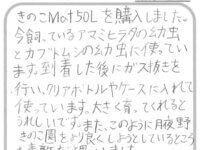 きのこMat50Lを購入しました。
今飼っているアマミヒラタの幼虫
とカブトムシの幼虫に使ってい
ます。到着した後にガス抜きを
行い、クリアボトルやケースに入れて
使っています。大きく育ってくれると
うれしいです。また、このように月夜野
きのこ園をより良くしようとしているところ